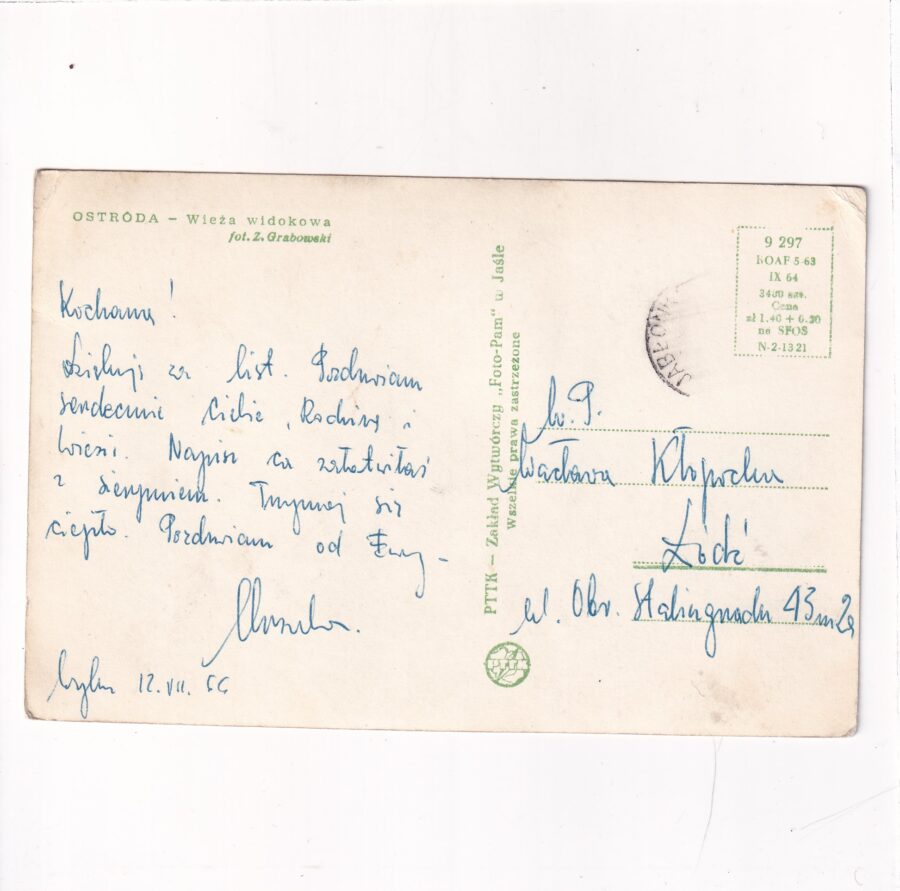 OSTRÓDA – Wieża widokowa
fot. Z. Grabowski
Kochana!
Dziękuję za list. Pozdrawiam
serdecznie Ciebie, Rodzinę i
Napisz co załatwiłaś
z sierpniem. Trzymaj się
ciepło. Pozdrawiam od Ewy –
12.VII.66
PTTK – Zakład Wytwórczy „Foto-Pam" w Jaśle
Wszelkie prawa zastrzeżone
PTTK
9 297
BOAF 5-63
IX 64
2400 szt.
Cena
zł 1.40 + 0.20
na SFOS
N-2-1321
W.P.
Wacława
Łódź
ul. Obr. Stalingradu 43 m 2a